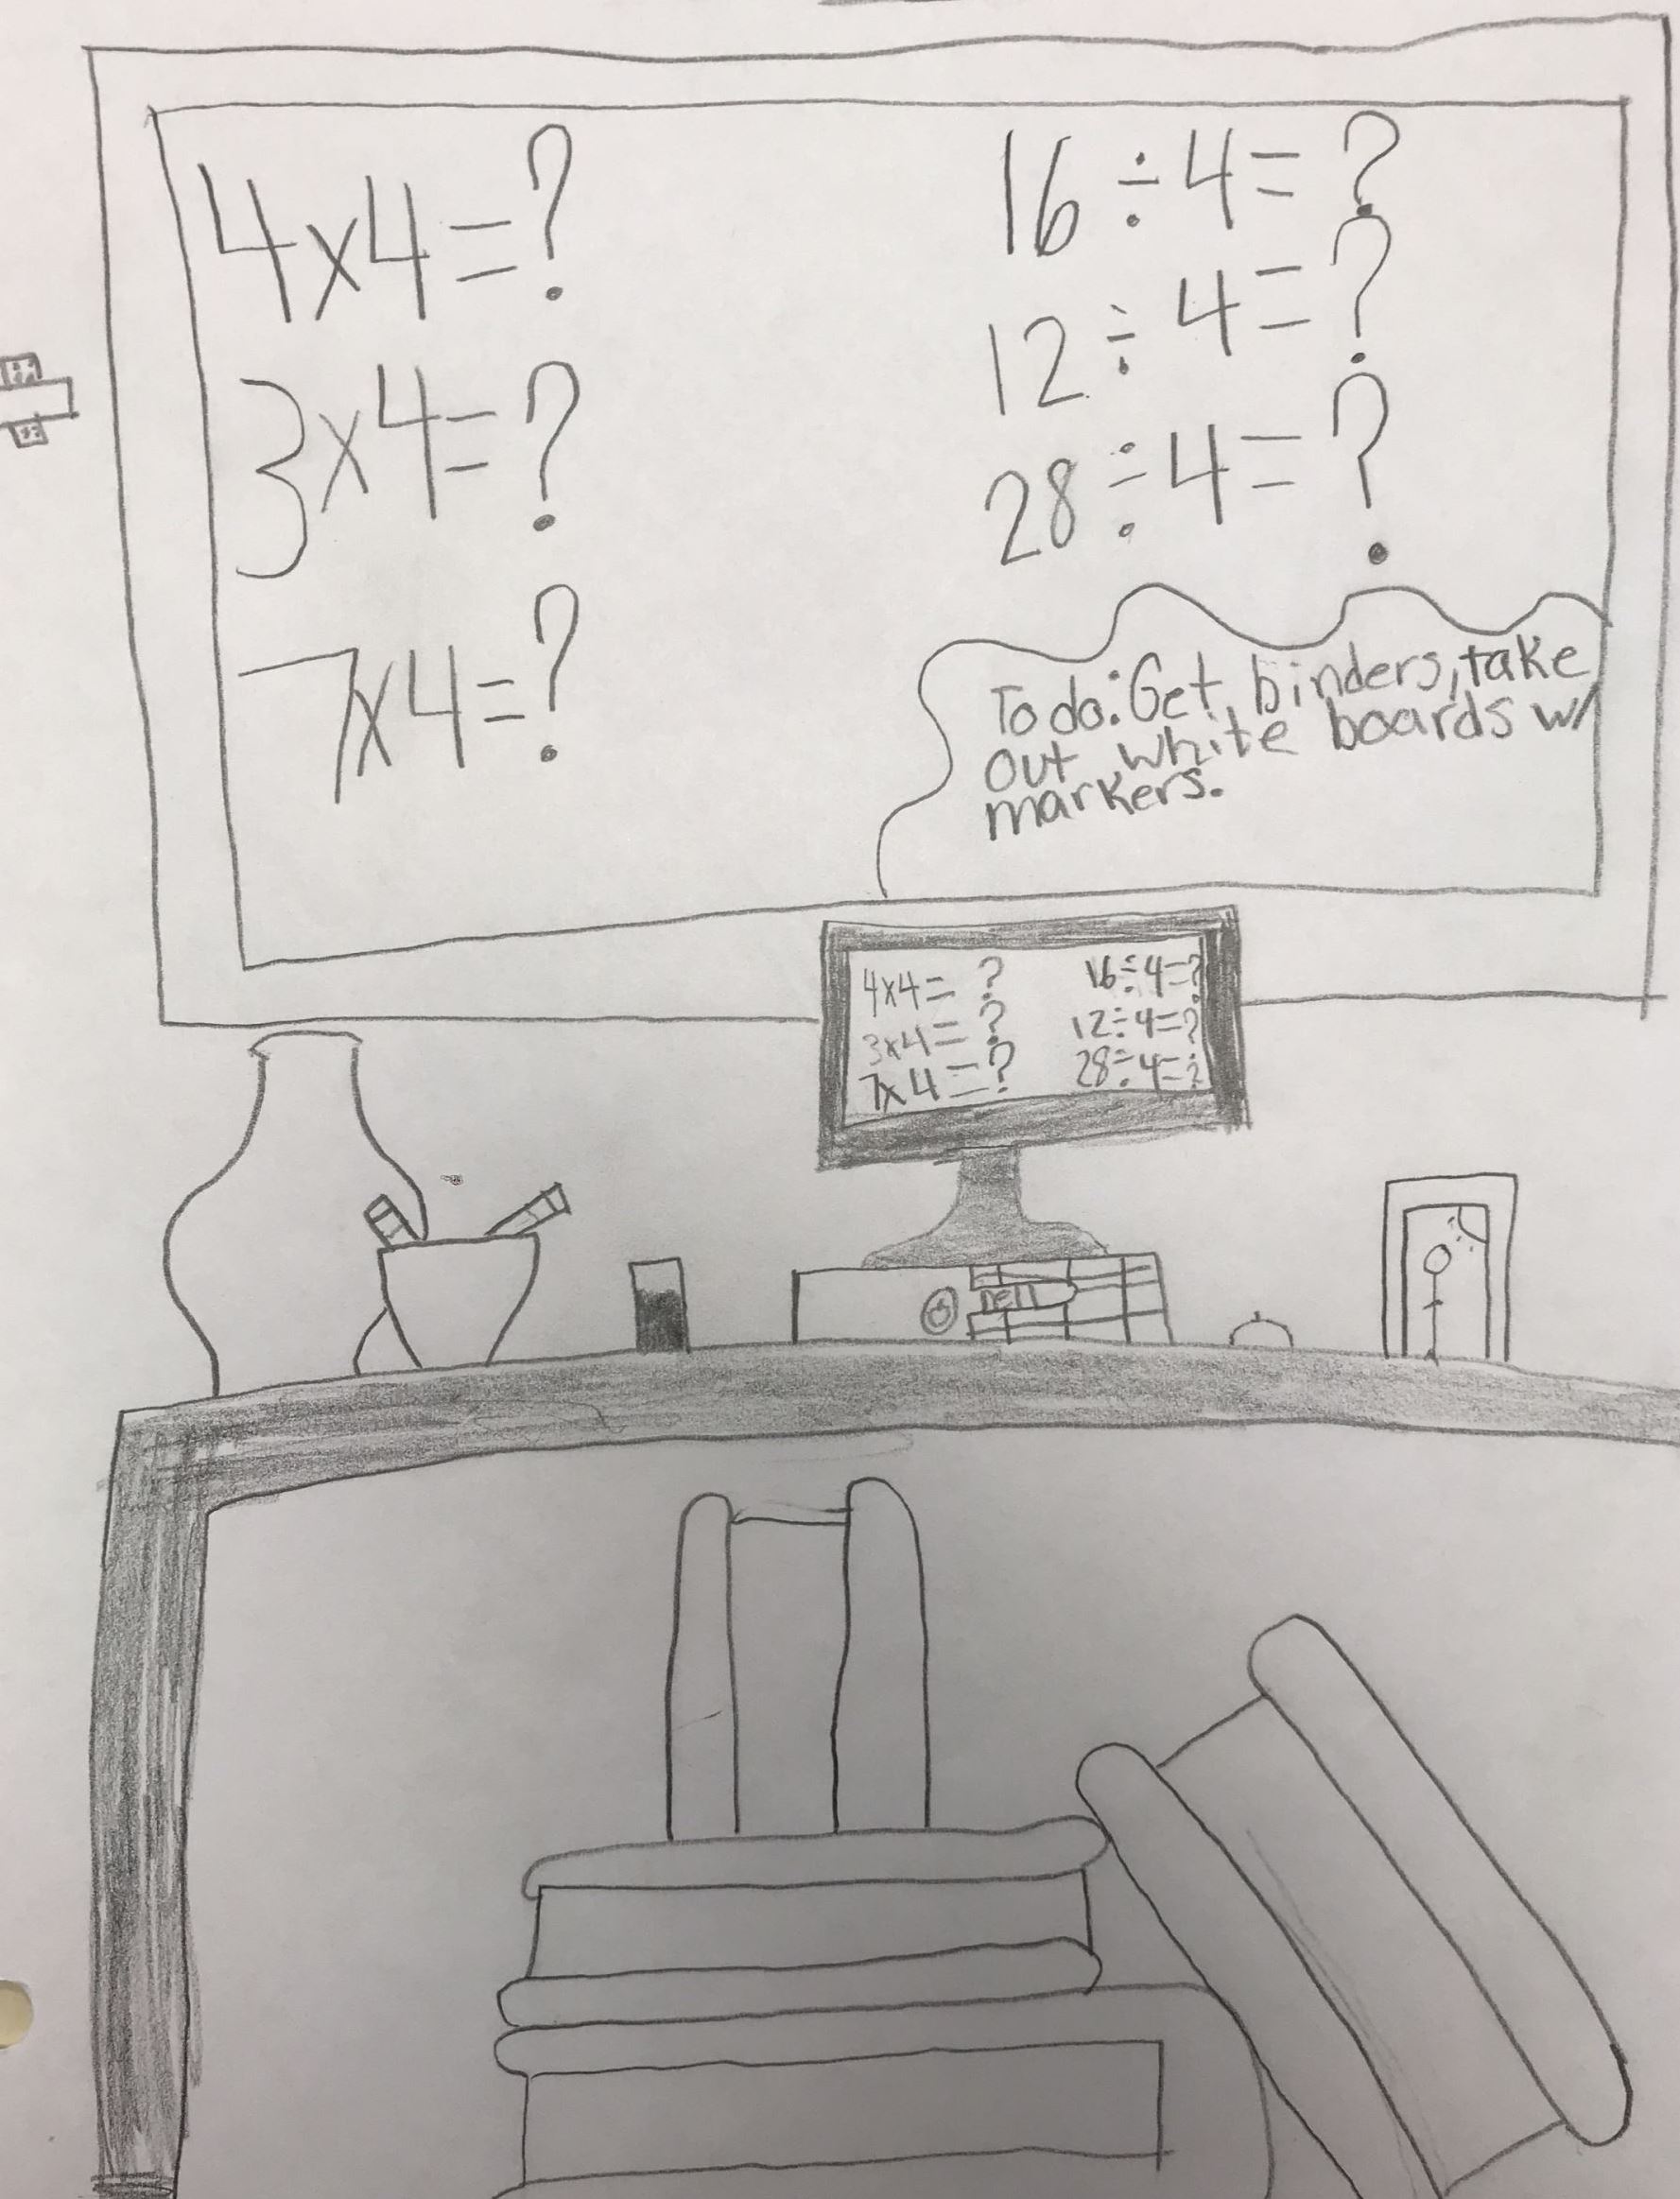 4x4=?
3x4=?
7x4=?
16÷4=?
12÷4=?
28÷4=?
To do: Get binders, take
out white boards w/
markers.
4x4=?
3x4=?
7x4=?
16÷4=?
12÷4=?
28÷4=?
Dell